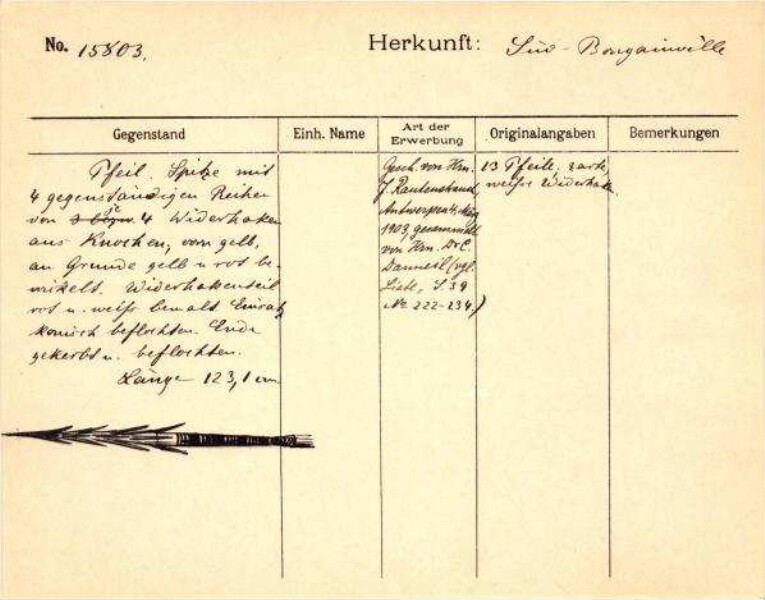 No. 15803. Herkunft: Süd-Bougainville
Gegenstand Einh. Name Art der Erwerbung Originalangaben Bemerkungen
Pfeil. Spitze mit
4 gegenständigen Reihen
von je 4 Widerhaken
aus Knochen, vorn gelb,
an Grunde gelb u rot be-
wickelt. Widerhakenteil
rot u. weiß bemalt
konisch beflochten. Ende
gekerbt u. beflochten.
Länge 123,1 cm
Gesch. von Hrn.
J. Rautenstrauch,
Antwerpen
1903, gesammelt
von Hrn. Dr C.
Danneil (vgl.
Liste, S 39
No 222-234.)
13 Pfeile, zarte,
weiße Widerhak.